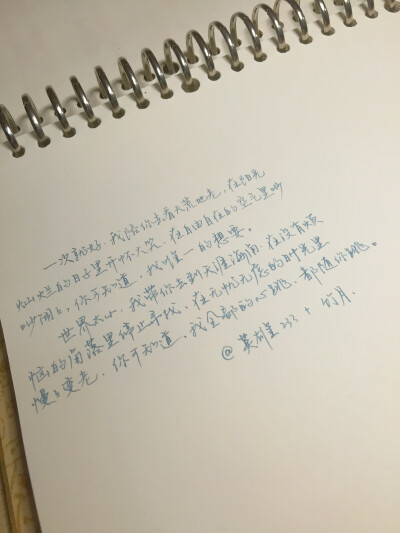 一次就好，我陪你去看天荒地老，在阳光
灿烂的日子里开怀大笑，在自由自在的空气里吵
吵闹々，你可知道，我唯一的想要。
世界太小，我带你去到天涯海角，在没有烦
恼的角落里停止寻找，在无忧无虑的时光里
慢々变老，你可知道，我全部的心跳，都随你跳。
@英 233 + 竹月.